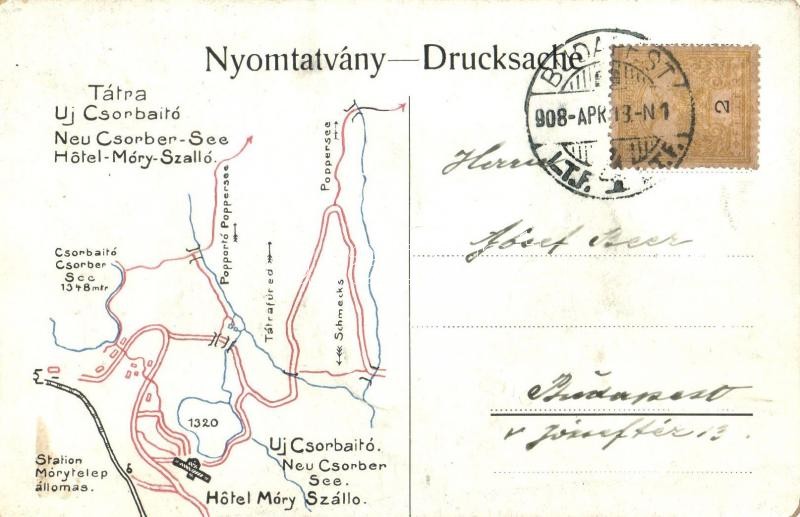 Nyomtatvány—Drucksache
Tátra
Uj Csorbaitó
Neu Csorber-See
Hôtel-Móry-Szalló.
BUDAPEST
908-APR.13-N1
2
Csorbaitó
Csorber
See
1348 mtr
Poppertó Poppersee
Poppersee
Tátrafüred
Schmecks
5
1320
Uj Csorbaitó.
Neu Csorber
See.
Hôtel Móry Szállo.
Station
Mórytelep
állomas.
6
Herrn
József Beer
Budapest
V Józseftér 13.